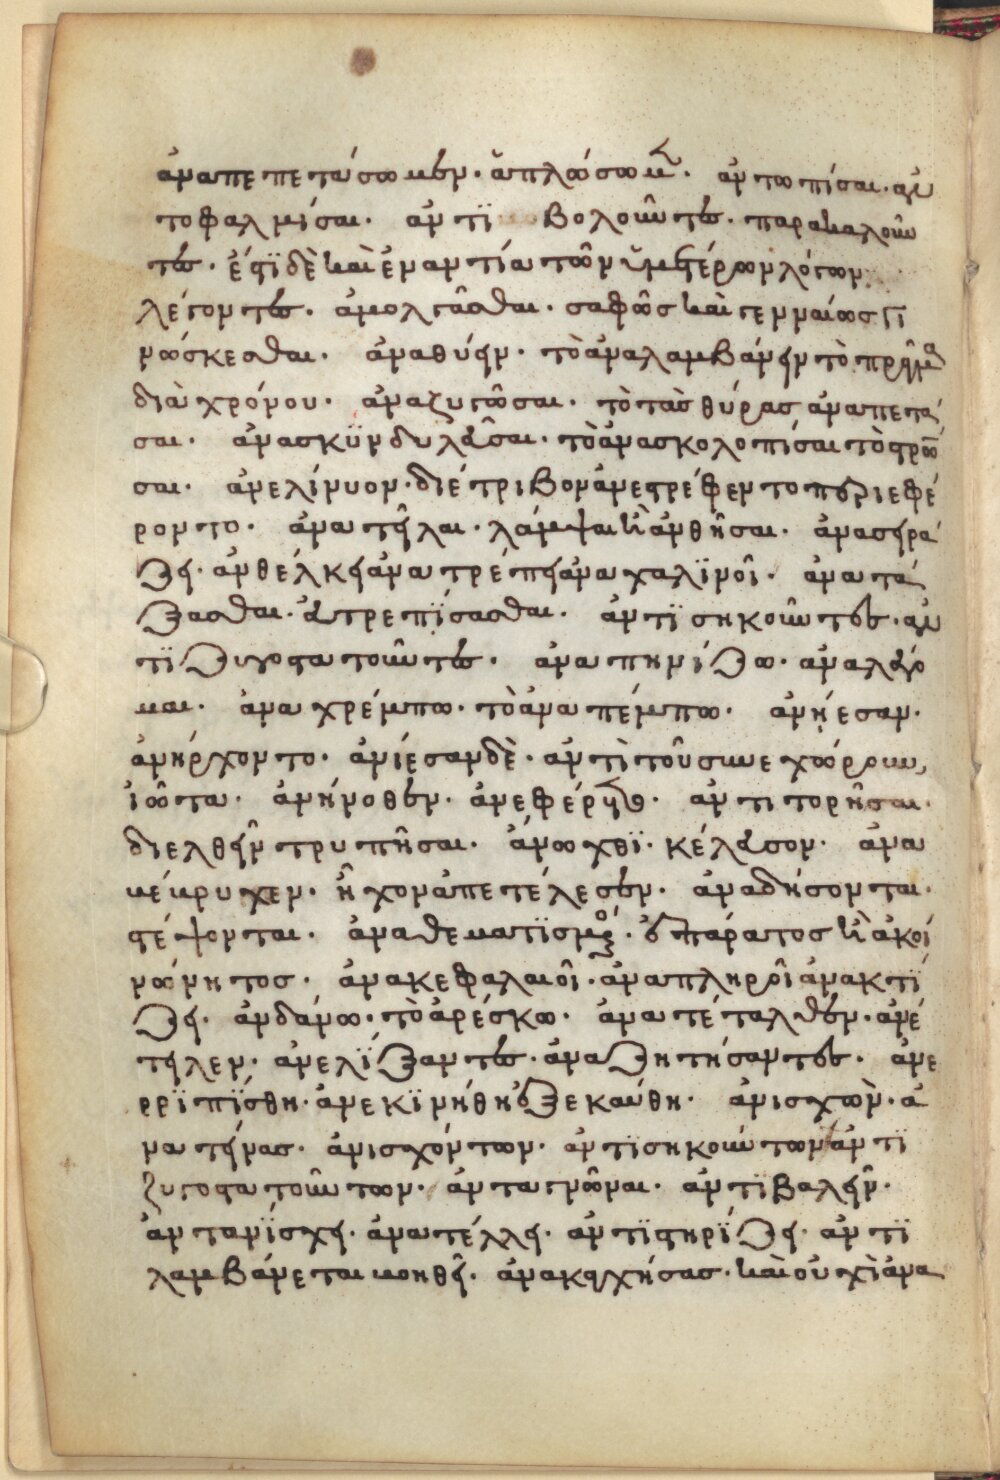 ἀναπεπετάσωμεν· ἁπλώσωμ · ἀντωπίσαι· ἀν
τοφαλμίσαι· ἀντϊ βολοῦντες· παρακαλοῦν
τες· ἔστϊ δὲ καὶ ἐναντία τῶν ὑμετέρων λόγων
λέγοντες· ἀμολγᾶσθαι· σαφῶς καὶ γενναίως γι
νώσκεσθαι· ἀναθύειν· τὸ ἀναλαμβάνειν τὸ πρᾶγμα
διὰ χρόνου· ἀναζυγῶσαι· τὸ τὰς θύρας ἀναπετά
σαι· ἀνασκϋνδυλεῦσαι· τὸ ἀνασκολοπίσαι τὸ στρῶ
σαι· ἀνελίνυον· διέτριβον ἀνεστρέφεντο περιεφέ
ροντο· ἀνατεῖλαι· λάμψαι καὶ ἀνθῆσαι· ἀνασειρά
ζει· ἀνθέλκει ἀνατρέπει ἀναχαλϊνοῖ· ἀνατά
ξασθαι· εὐτρεπϊσασθαι· ἀντϊσηκοῦντες· ἀν
τϊζυγοστατοῦντες· ἀναπηνίζω· ἀναλέγο
μαι· ἀναχρέμπω· τὸ ἀναπέμπω· ἀνῄεσαν·
ἀνήρχοντο· ἀνίεσαν δὲ· ἀντὶ τοῦ συνεχώρουν
ἰῶτα· ἀνήνοθεν· ἀνεφέρετο· ἀντιτορῆσαι·
διελθεῖν τρυπῆσαι· ἀνώχθϊ· κέλευσον· ἀνα
κέκρυχεν· ἦχον ἀπετέλεσεν· ἀναδήσονται·
στέψονται· ἀναθεματϊσμός· ὁ ἐπάρατος καὶ ἀκοι
νώνητος· ἀνακεφαλαιοῖ· ἀναπληροῖ ἀνακτί
ζει· ἀνδάνω· τὸ ἀρέσκω· ἀνατέταλθεν· ἀνέ
τειλεν· ἀνελίξαντες· ἀναζητήσαντες· ἀνε
ρρϊπίσθη· ἀνεκϊνήθη ἐξεκαύθη· ἀνισχὼν· ἀ
νατείνας· ἀνισχόντων· ἀντϊσηκούντων ἀντϊ
ζυγοστατούντων· ἀνταγρῶναι· ἀντϊβαλεῖν·
ἀντανίσχει· ἀνατέλλει· ἀντϊστηρίζει· ἀντϊ
λαμβάνεται βοηθεῖ· ἀνακαχήσας· καὶ οὐχὶ ἀνα